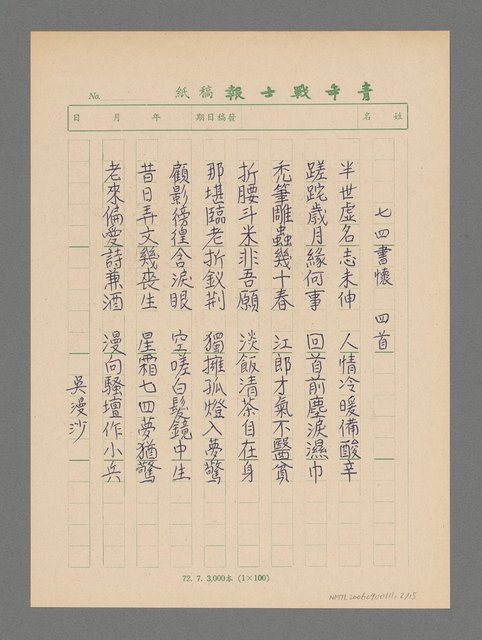 青年戰士報 稿紙
No.
姓名
發稿日期
年 月 日
七四書懷 四首
半世虛名志未伸 人情冷暖備酸辛
蹉跎歲月緣何事 回首前塵淚濕巾
禿筆雕蟲幾十春 江郎才氣不醫貧
折腰斗米非吾願 淡飯清茶自在身
那堪臨老折釵荆 獨擁孤燈入夢驚
顧影徬徨含淚眼 空嗟白髮鏡中生
昔日弄文幾喪生 星霜七四夢猶驚
老來偏愛詩兼酒 漫向騷壇作小兵
吳漫沙
72. 7. 3,000本 (1×100)
NMTL20060900111. 2/15